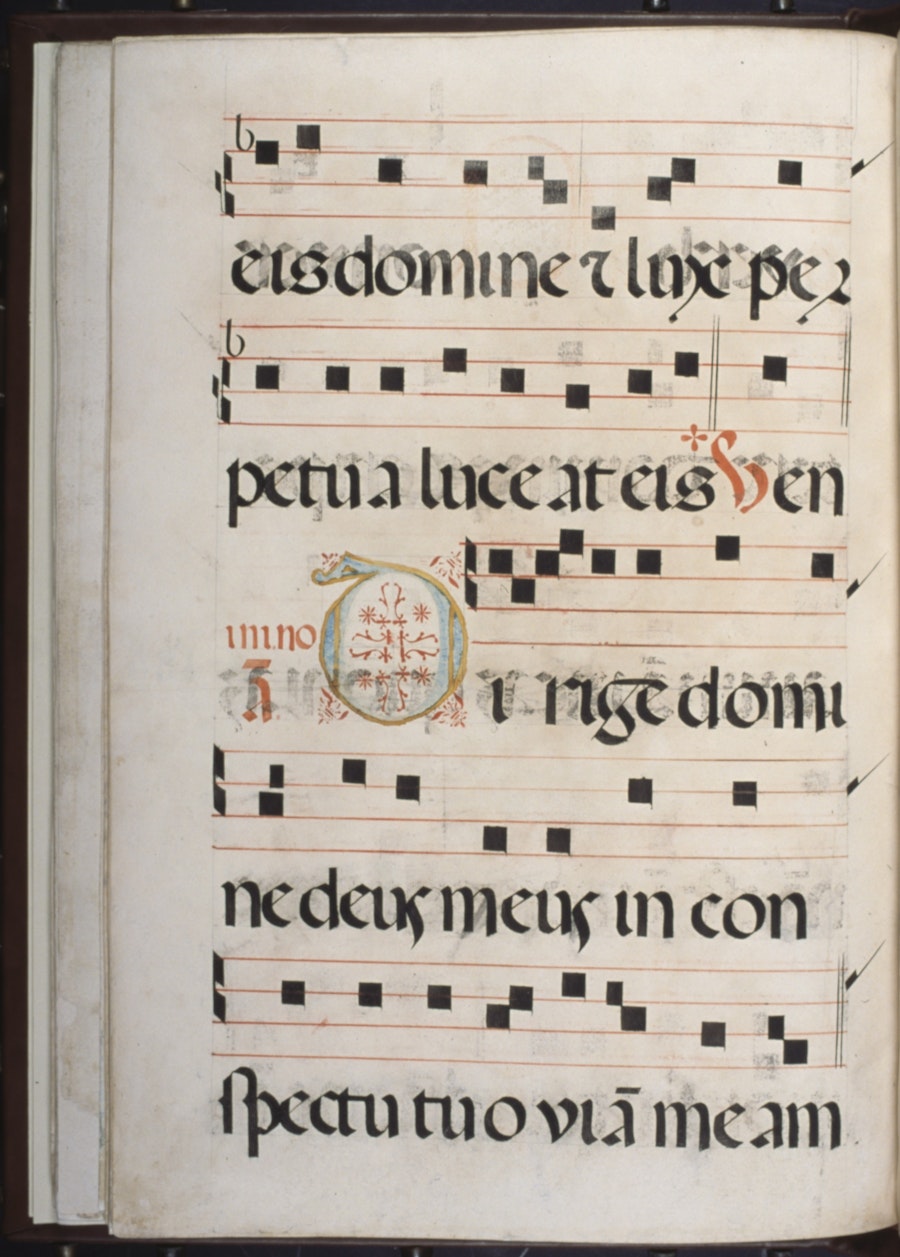 eis domine ⁊ luxe per
petua luceat eis Ven
im.no
A Dirige domi
ne deus meus in con
spectu tuo viā meam